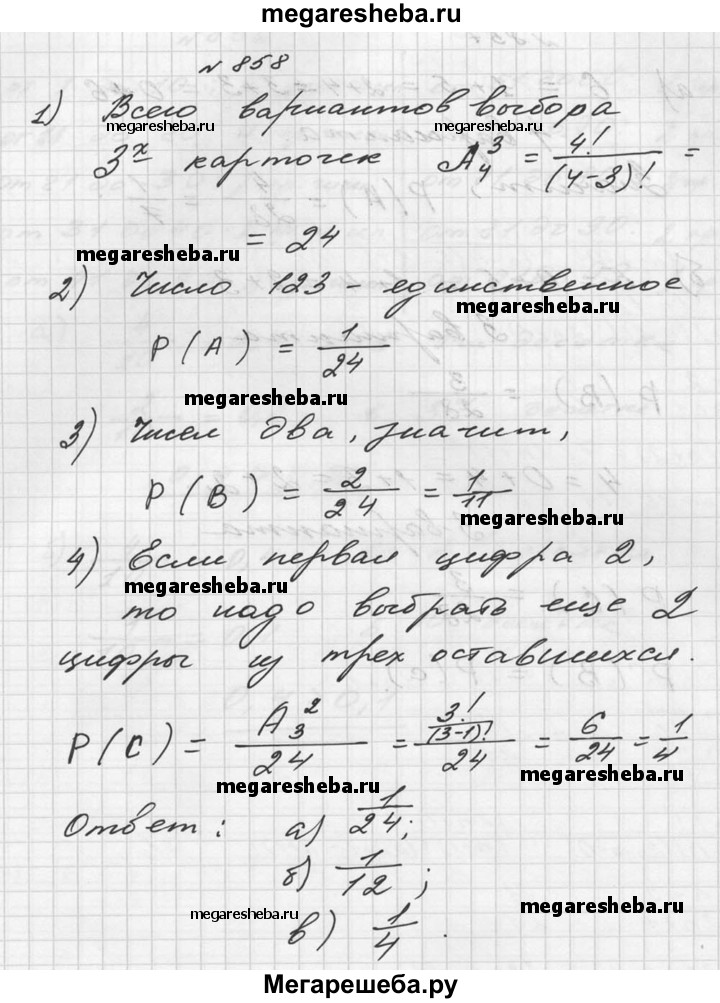 megaresheba.ru
№ 858
1) Всего вариантов выбора
megaresheba.ru megaresheba.ru
3х карточек A₄³ = 4!/(4-3)! =
= 24
megaresheba.ru
2) Число 123 - единственное
megaresheba.ru
P(A) = 1/24
megaresheba.ru
3) Чисел два, значит,
P(B) = 2/24 = 1/11
megaresheba.ru
4) Если первая цифра 2,
megaresheba.ru megaresheba.ru
то надо выбрать еще 2
цифры из трех оставшихся.
P(C) = A₃²/24 = 3!/(3-1)!/24 = 6/24 = 1/4
megaresheba.ru megaresheba.ru
Ответ: а) 1/24;
б) 1/12;
megaresheba.ru megaresheba.ru
в) 1/4.
Мегарешеба.ру